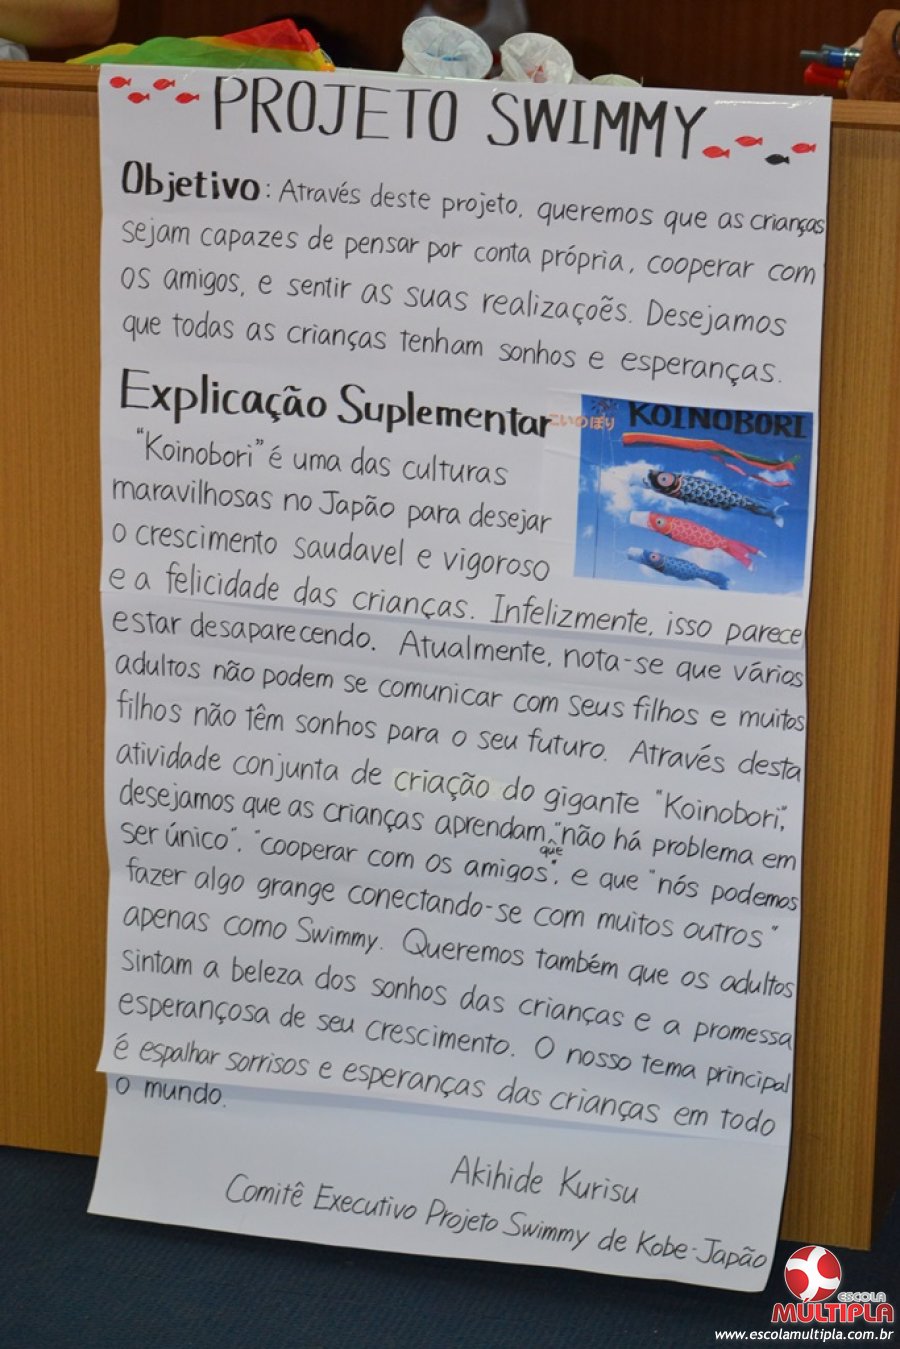 PROJETO SWIMMY
Objetivo: Através deste projeto, queremos que as crianças
sejam capazes de pensar por conta própria, cooperar com
os amigos, e sentir as suas realizações. Desejamos
que todas as crianças tenham sonhos e esperanças.
Explicação Suplementar
こいのぼり KOINOBORI
"Koinobori" é uma das culturas
maravilhosas no Japão para desejar
o crescimento saudavel e vigoroso
e a felicidade das crianças. Infelizmente, isso parece
estar desaparecendo. Atualmente, nota-se que vários
adultos não podem se comunicar com seus filhos e muitos
filhos não têm sonhos para o seu futuro. Através desta
atividade conjunta de criação do gigante "Koinobori",
desejamos que as crianças aprendam, "não há problema em
ser único", "cooperar com os amigos", e que "nós podemos
que
fazer algo grange conectando-se com muitos outros"
apenas como Swimmy. Queremos também que os adultos
sintam a beleza dos sonhos das crianças e a promessa
esperançosa de seu crescimento. O nosso tema principal
é espalhar sorrisos e esperanças das crianças em todo
o mundo.
Akihide Kurisu
Comitê Executivo Projeto Swimmy de Kobe-Japão
ESCOLA
MÚLTIPLA
www.escolamultipla.com.br